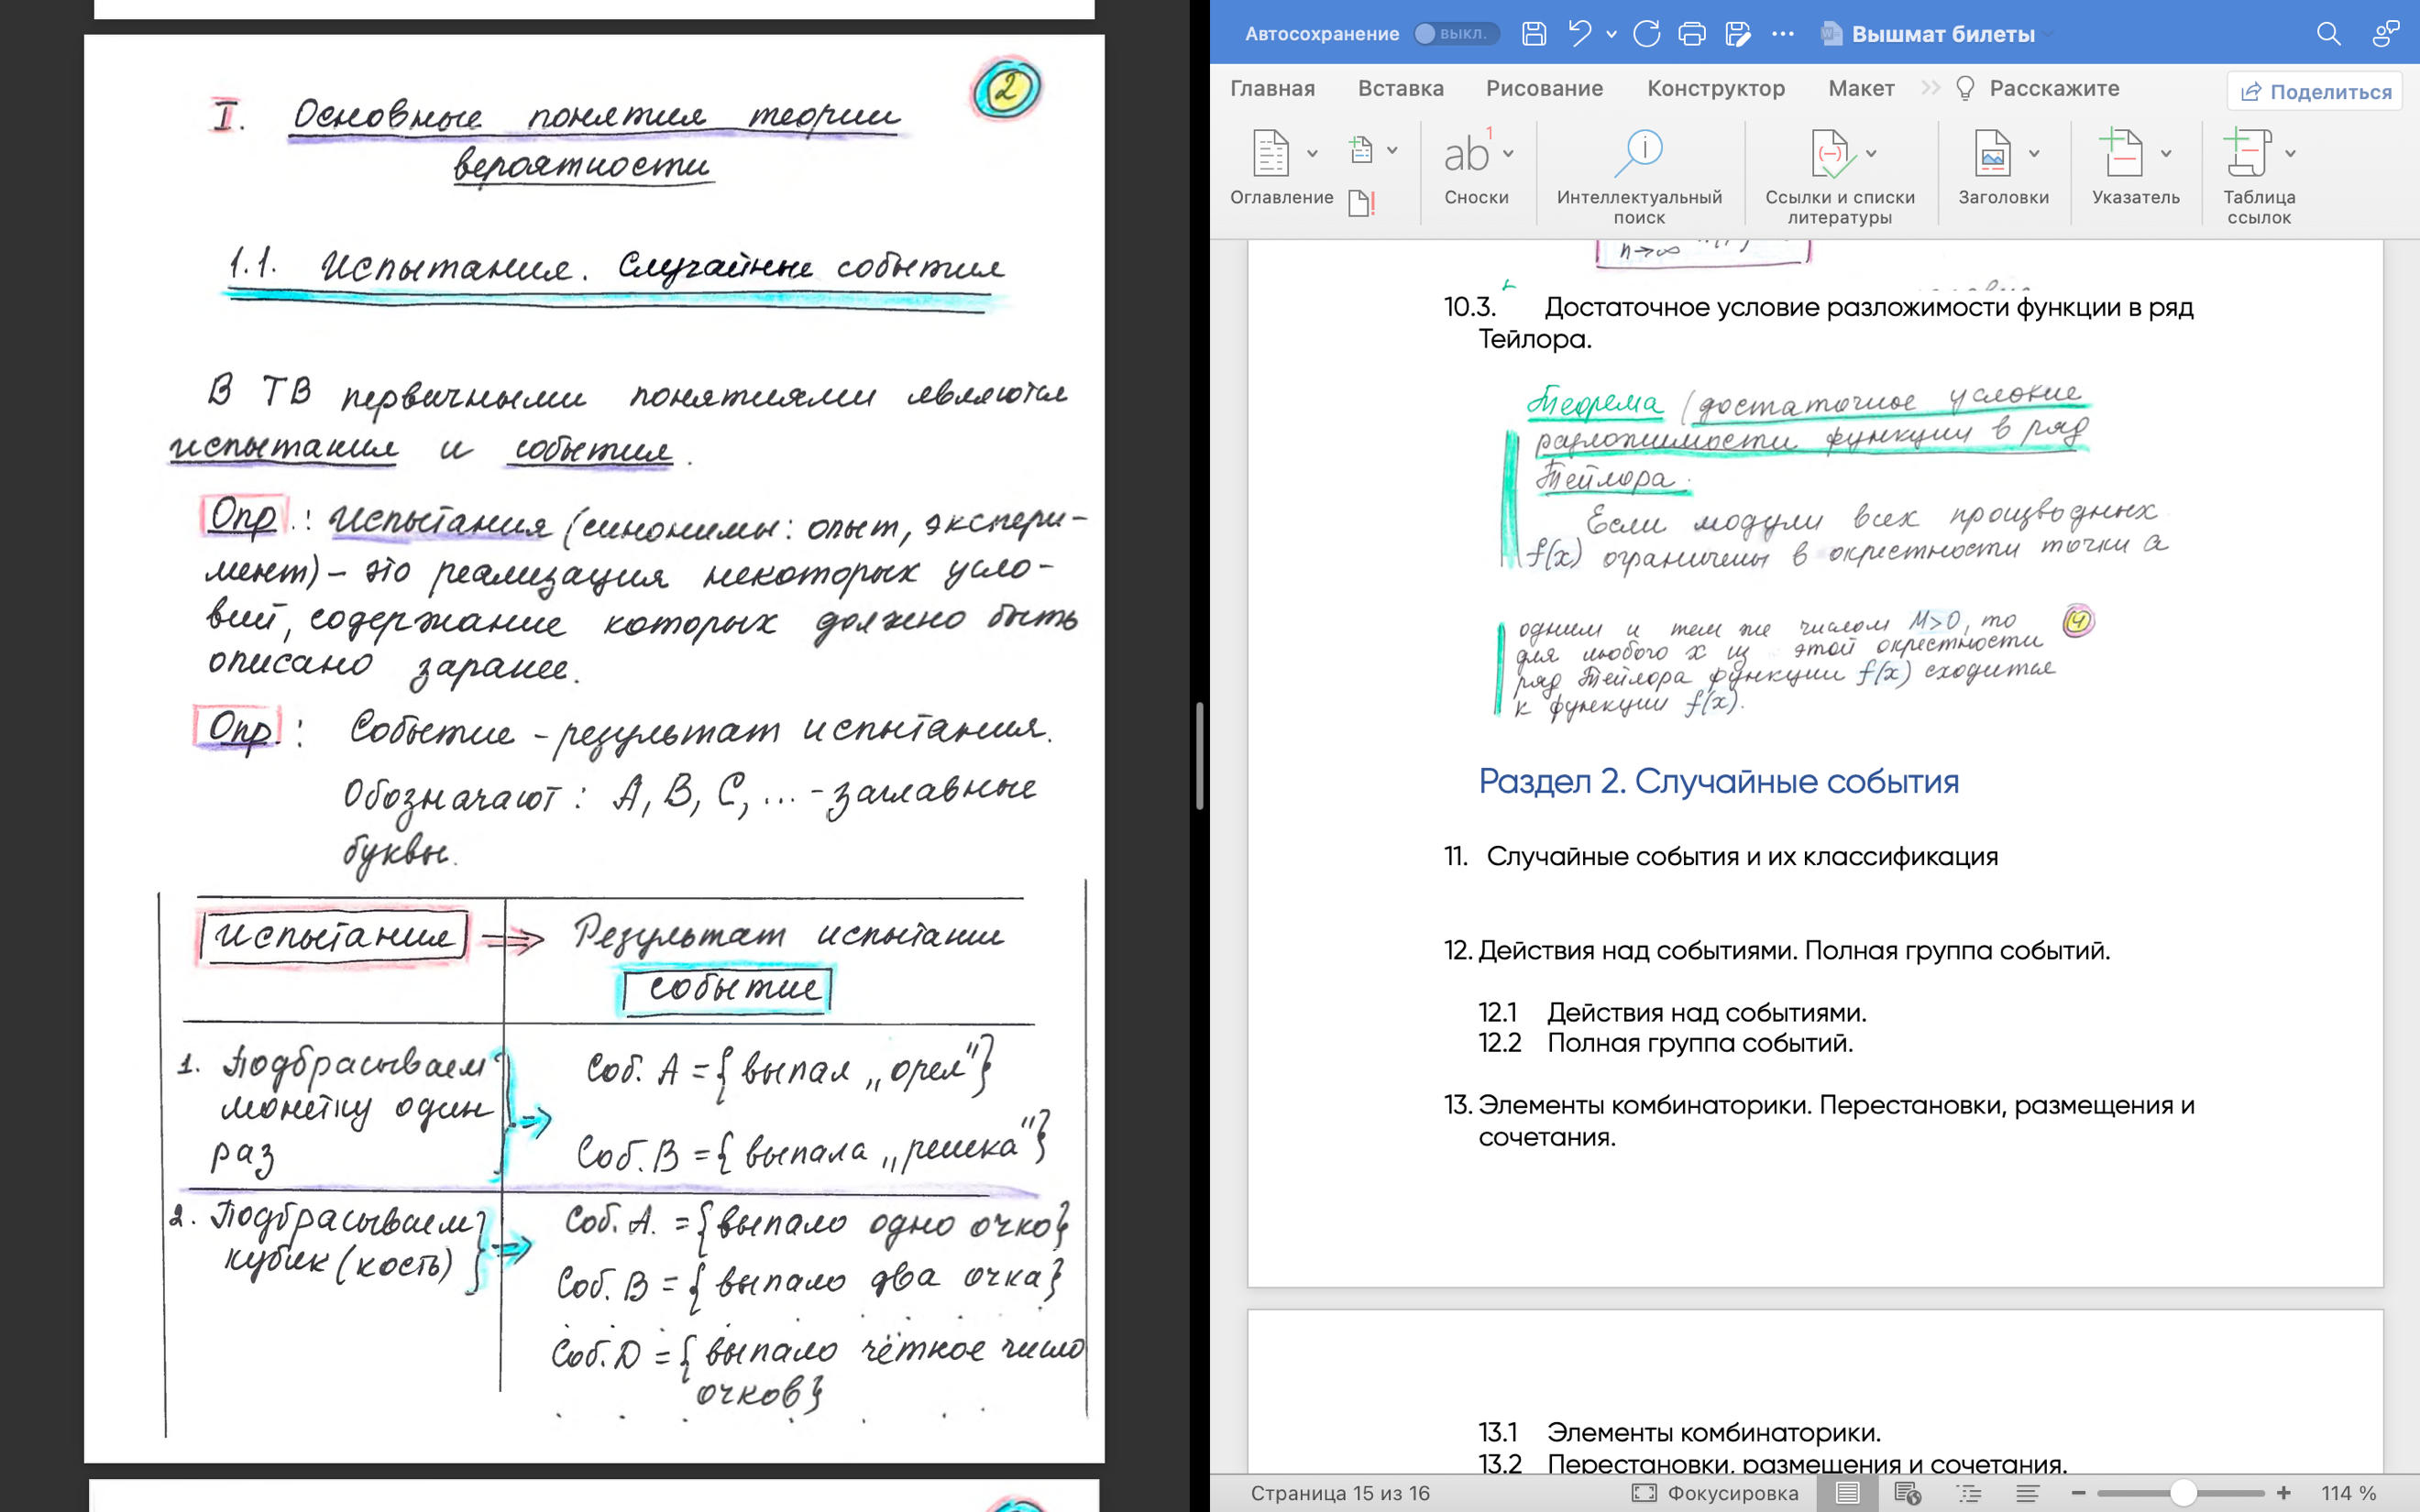 2
I. Основные понятия теории
вероятности
1.1. Испытания. Случайные события
В ТВ первичными понятиями являются
испытания и события.
Опр.: Испытания (синонимы: опыт, экспери-
мент) – это реализация некоторых усло-
вий, содержание которых должно быть
описано заранее.
Опр: Событие – результат испытания.
Обозначают: A, B, C, ... – заглавные
буквы.
Испытания ⇒ Результат испытани
событие
1. Подбрасываем
монетку один
раз
Соб. A = {выпал „орел"}
Соб. B = {выпала „решка"}
2. Подбрасываем
кубик (кость)
Соб. A. = {выпало одно очко}
Соб. B = {выпало два очка}
Соб. D = {выпало чётное число
очков}
Автосохранение ВЫКЛ. ... Вышмат билеты
Главная Вставка Рисование Конструктор Макет >> Расскажите Поделиться
Оглавление
ab 1
Сноски
Интеллектуальный
поиск
Ссылки и списки
литературы
Заголовки
Указатель
Таблица
ссылок
n→∞
10.3. Достаточное условие разложимости функции в ряд
Тейлора.
Теорема (достаточное условие
разложимости функции в ряд
Тейлора.
Если модули всех производных
f(x) ограничены в окрестности точки a
одним и тем же числом M>0, то 4
для любого x из этой окрестности
ряд Тейлора функции f(x) сходится
к функции f(x).
Раздел 2. Случайные события
11. Случайные события и их классификация
12. Действия над событиями. Полная группа событий.
12.1 Действия над событиями.
12.2 Полная группа событий.
13. Элементы комбинаторики. Перестановки, размещения и
сочетания.
13.1 Элементы комбинаторики.
13.2 Перестановки, размещения и сочетания.
Страница 15 из 16 Фокусировка − + 114 %